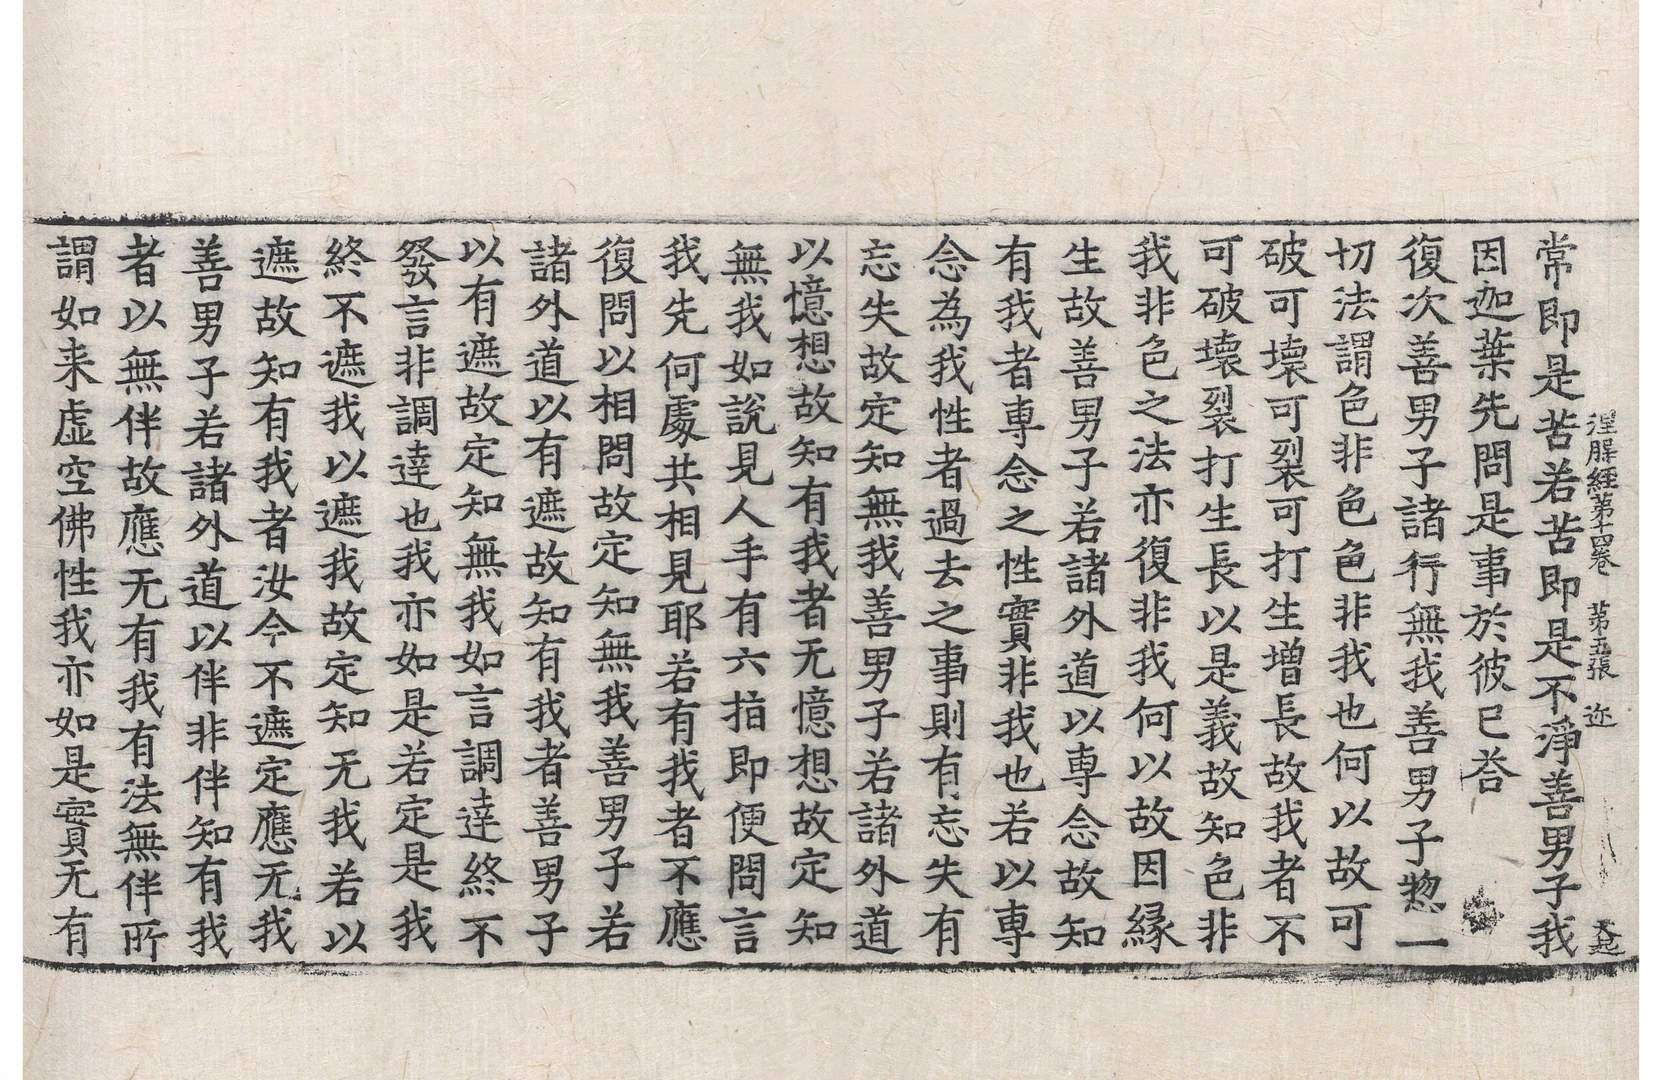 涅槃經第十四卷 第五張 迩 天起
常即是苦若苦即是不淨善男子我
因迦葉先問是事於彼已荅
復次善男子諸行無我善男子惣一
切法謂色非色色非我也何以故可
破可壞可裂可打生增長故我者不
可破壞裂打生長以是義故知色非
我非色之法亦復非我何以故因縁
生故善男子若諸外道以專念故知
有我者專念之性實非我也若以專
念為我性者過去之事則有忘失有
忘失故定知無我善男子若諸外道
以憶想故知有我者无憶想故定知
無我如說見人手有六指即便問言
我先何處共相見耶若有我者不應
復問以相問故定知無我善男子若
諸外道以有遮故知有我者善男子
以有遮故定知無我如言調達終不
發言非調達也我亦如是若定是我
終不遮我以遮我故定知无我若以
遮故知有我者汝今不遮定應无我
善男子若諸外道以伴非伴知有我
者以無伴故應无有我有法無伴所
謂如来虛空佛性我亦如是實无有